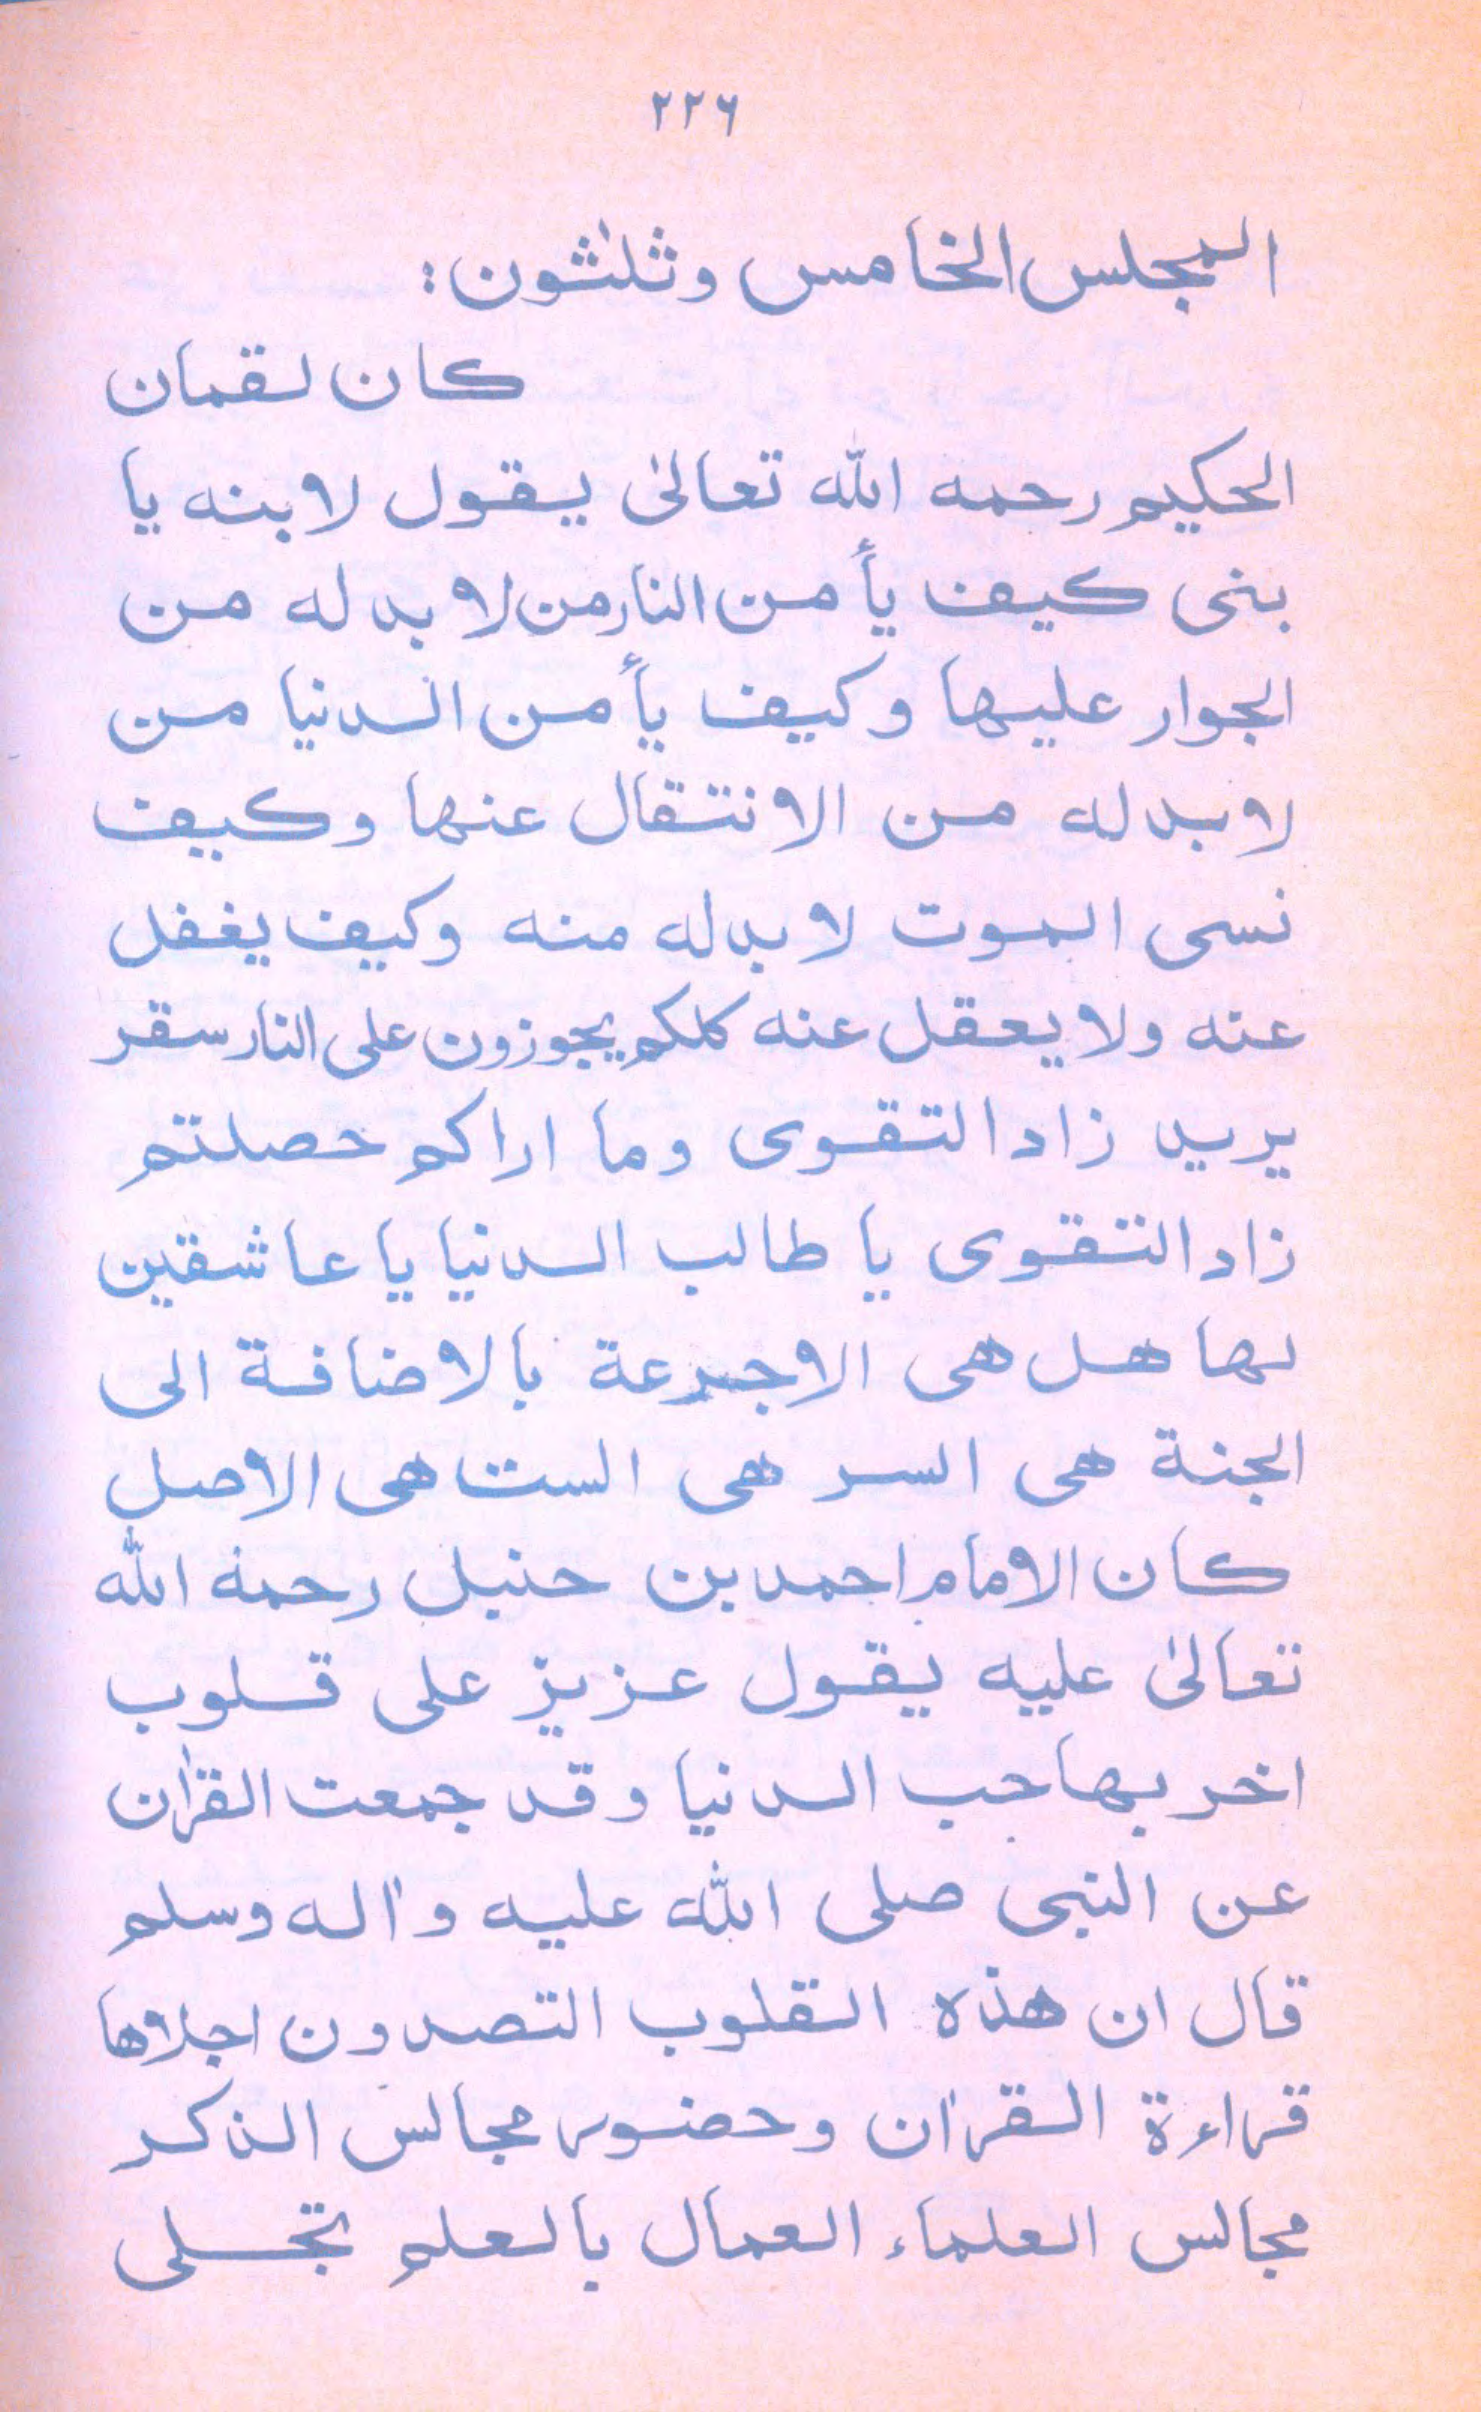 ٢٢٦
المجلس الخامس وثلثون:
كان لقمان
الحكيم رحمه الله تعالىٰ يقول لابنه يا
بنى كيف يأمن النار من لابد له من
الجوار عليها وكيف يأمن الدنيا من
لابد له من الانتقال عنها وكيف
نسى الموت لابد له منه وكيف يغفل
عنه ولا يعقل عنه كلكم يجوزون على النار سقر
يريد زاد التقوى وما اراكم حصلتم
زاد التقوى يا طالب الدنيا يا عاشقين
لها هل هى الاجرعة بالاضافة الى
الجنة هى السر هى الست هى الاصل
كان الامام احمد بن حنبل رحمة الله
تعالىٰ عليه يقول عزيز على قلوب
اخر بها حب الدنيا وقد جمعت القرٰان
عن النبى صلى الله عليه واٰله وسلم
قال ان هذه القلوب التصدون اجلاها
قراءة القراٰن وحضور مجالس الذكر
مجالس العلماء العمال بالعلم تجلى